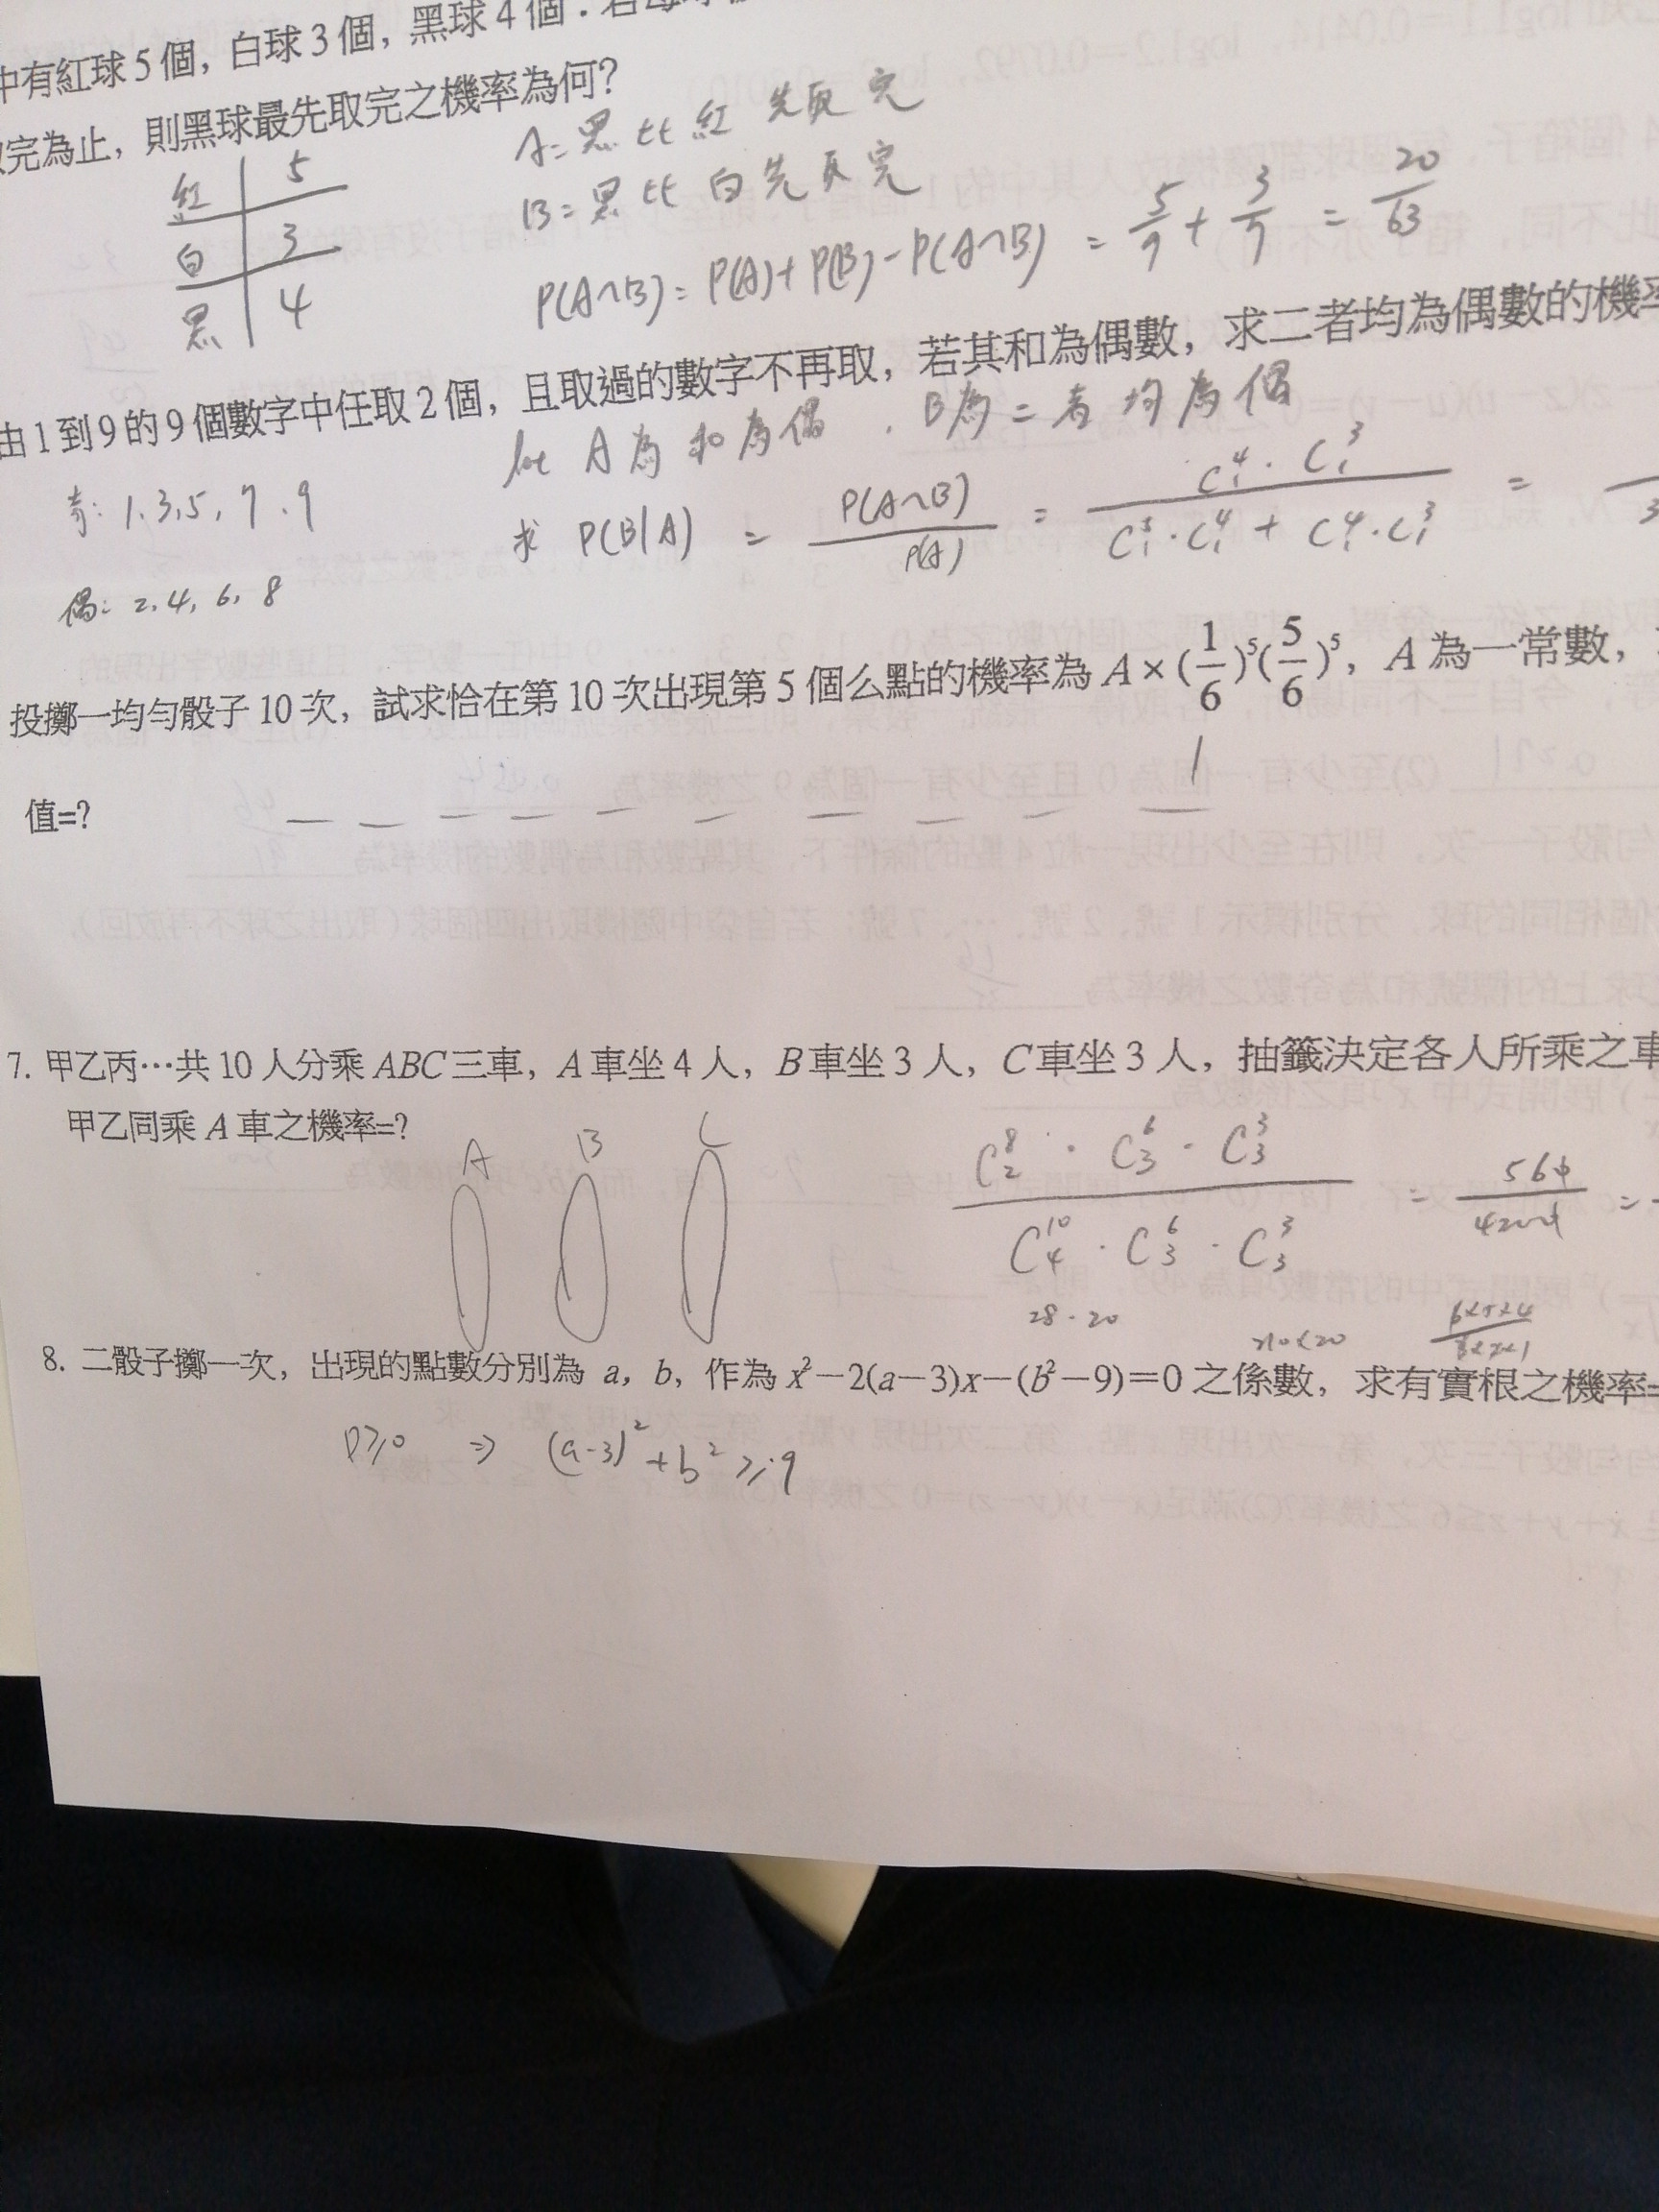 中有紅球5個，白球3個，黑球4個．若每
完為止，則黑球最先取完之機率為何？
紅 5
白 3
黑 4
A=黑比紅先取完
B=黑比白先取完
P(A∩B)=P(A)+P(B)-P(A∩B) = 5/9 + 3/7 = 20/63
由1到9的9個數字中任取2個，且取過的數字不再取，若其和為偶數，求二者均為偶數的機率
let A為和為偶．B為二者均為偶
奇: 1.3.5, 7.9
偶: 2.4, 6, 8
求 P(B|A) = P(A∩B)/P(A) = C⁴₁·C³₁ / C⁵₁·C⁴₁ + C⁴₁·C³₁ =
投擲一均勻骰子10次，試求恰在第10次出現第5個么點的機率為 A×(1/6)⁵(5/6)⁵，A為一常數，
值=?
1
7. 甲乙丙…共10人分乘ABC三車，A車坐4人，B車坐3人，C車坐3人，抽籤決定各人所乘之車
甲乙同乘A車之機率=?
A B C
C⁸₂·C⁶₃·C³₃ / C¹⁰₄·C⁶₃·C³₃ = 560/4200 =
28·20
210×20
6×5×4/3×2×1
8. 二骰子擲一次，出現的點數分別為 a，b，作為 x²−2(a−3)x−(b²−9)=0 之係數，求有實根之機率=
D≥0 ⇒ (a-3)²+b²≥9